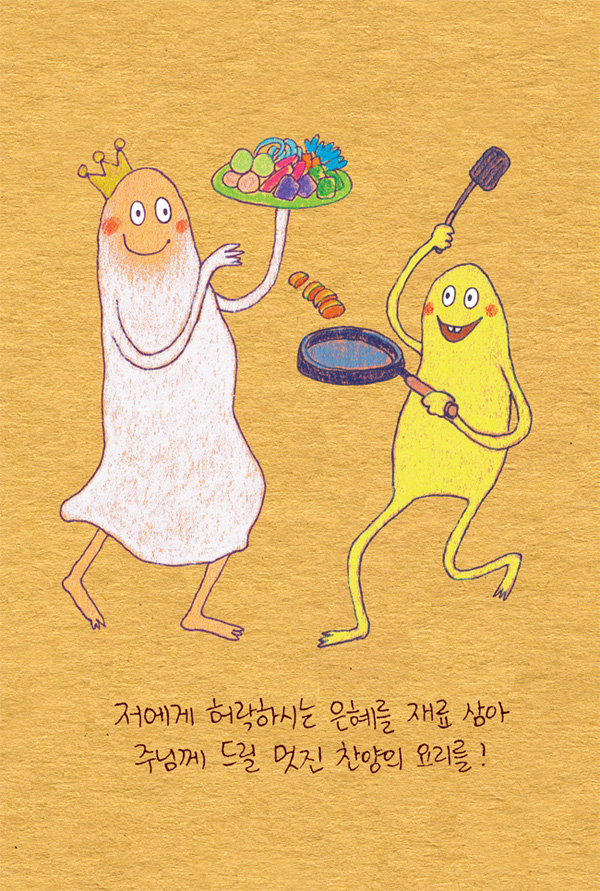 저에게 허락하시는 은혜를 재료 삼아
주님께 드릴 멋진 찬양의 요리를!